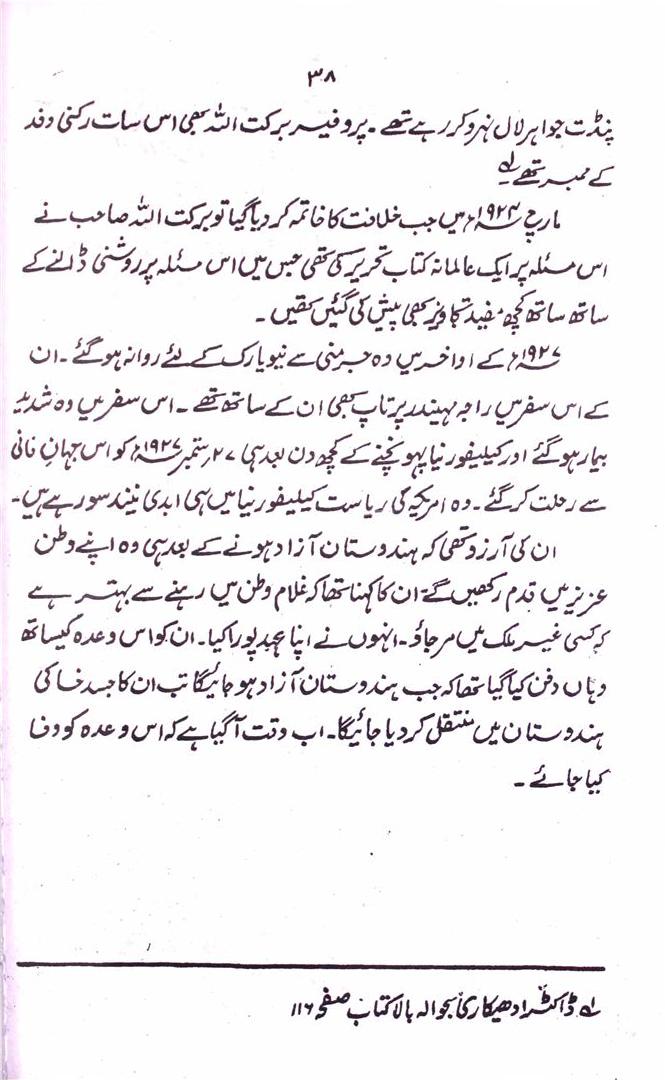 ۳۸
پنڈت جواہر لال نہرو کر رہے تھے۔ پروفیسر برکت اللہ بھی اس سات رکنی وفد
کے ممبر تھے۔ لے
مارچ ۱۹۲۴ء میں جب خلافت کا خاتمہ کر دیا گیا تو برکت اللہ صاحب نے
اس مسئلہ پر ایک عالمانہ کتاب تحریر کی تھی جس میں اس مسئلہ پر روشنی ڈالنے کے
ساتھ ساتھ کچھ مفید تجاویز بھی پیش کی گئیں تھیں۔
۱۹۲۷ء کے اواخر میں وہ جرمنی سے نیو یارک کے لئے روانہ ہو گئے۔ ان
کے اس سفر میں راجہ مہیندر پرتاپ بھی ان کے ساتھ تھے۔ اس سفر میں وہ شدید
بیمار ہو گئے اور کیلیفورنیا پہونچنے کے کچھ دن بعد ہی ۲۷؍ستمبر ۱۹۲۷ء کو اس جہانِ فانی
سے رحلت کر گئے۔ وہ امریکہ کی ریاست کیلیفورنیا میں ہی ابدی نیند سو رہے ہیں۔
ان کی آرزو تھی کہ ہندوستان آزاد ہونے کے بعد ہی وہ اپنے وطن
عزیز میں قدم رکھیں گے ان کا کہنا تھا کہ غلام وطن میں رہنے سے بہتر ہے
کہ کسی غیر ملک میں مر جاؤ۔ انہوں نے اپنا عہد پورا کیا۔ ان کو اس وعدہ کیساتھ
وہاں دفن کیا گیا تھا کہ جب ہندوستان آزاد ہو جائیگا تب ان کا جسد خاکی
ہندوستان میں منتقل کر دیا جائیگا۔ اب وقت آ گیا ہے کہ اس وعدہ کو وفا
کیا جائے۔
لے ڈاکٹر ادھیکاری بحوالہ بالا کتاب صفحہ ۱۱۶